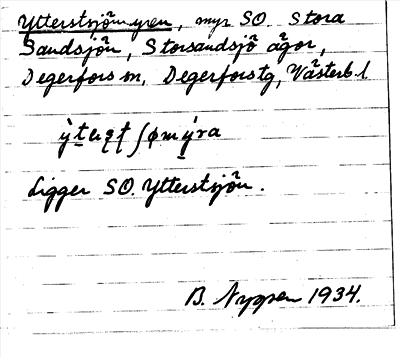 Ytterstsjömyren, myr SO. Stora
Sandsjön, Storsandsjö ägor,
Degerfors sn, Degerfors tg, Västerb. l
Ligger SO. Ytterstsjön.
B. Nyman 1934.